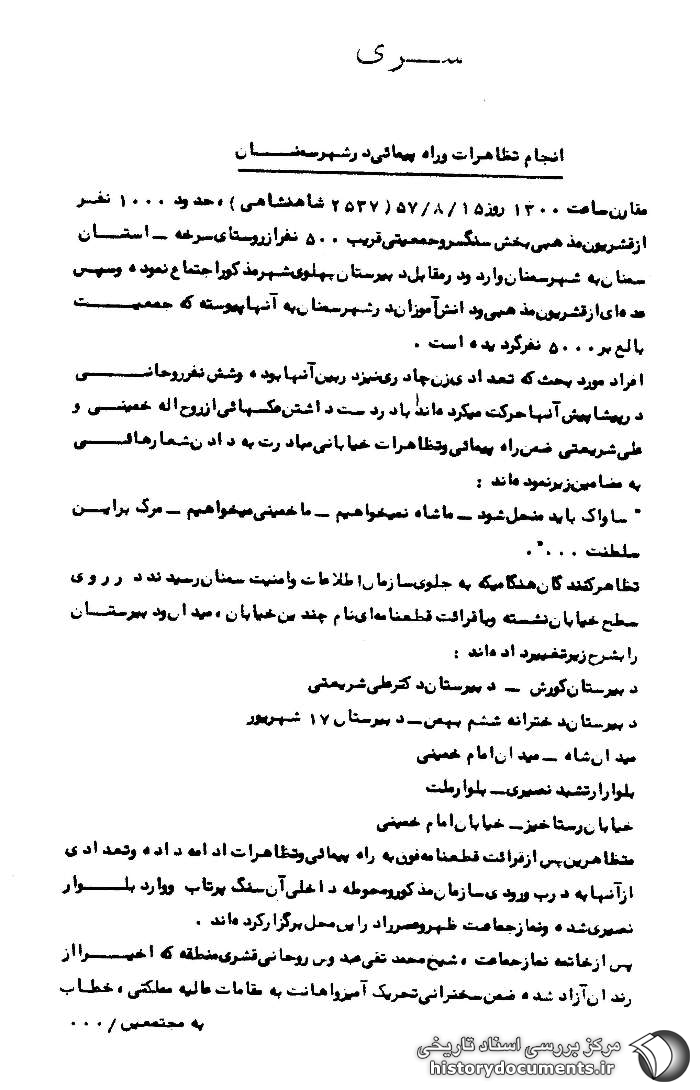 ســری
انجام تظاهرات و راه پیمائی در شهر سمنــــــان
مقارن ساعت ۱۳۰۰ روز ۵۷/۸/۱۵ (۲۵۳۷ شاهنشاهی)، حدود ۱۰۰۰ نفــر
از قشریون مذهبی بخش سنگسر و جمعیتی قریب ۵۰۰ نفر از روستای سرخه ــ استــان
سمنان به شهر سمنان وارد و در مقابل دبیرستان پهلوی شهر مذکور اجتماع نموده و سپس
عده ای از قشریون مذهبی و دانش آموزان در شهر سمنان به آنها پیوسته که جمعیـــت
بالغ بر ۵۰۰۰ نفر گردیده است .
افراد مورد بحث که تعدادی زن چادری نیز در بین آنها بوده و شش نفر روحانـــــی
در پیشاپیش آنها حرکت میکرده اند با در دست داشتن عکسهائی از روح اله خمینــی و
علی شریعتی ضمن راه پیمائی و تظاهرات خیابانی مبادرت به دادن شعارهائـــی
به مضامین زیر نموده اند :
" ساواک باید منحل شود ــ ما شاه نمیخواهیم ــ ما خمینی میخواهیم ــ مرگ بر ایــن
سلطنت ...".
تظاهر کنندگان هنگامیکه به جلوی سازمان اطلاعات و امنیت سمنان رسیدند در روی
سطح خیابان نشسته و با قرائت قطعنامه ای نام چندین خیابان ، میدان و دبیرستــان
را بشرح زیر تغییر داده اند :
دبیرستان کورش ــ دبیرستان دکتر علی شریعتی
دبیرستان دخترانه ششم بهمن ــ دبیرستان ۱۷ شهریور
میدان شاه ــ میدان امام خمینی
بلوار ارتشبد نصیری ــ بلوار ملت
خیابان رستاخیز ــ خیابان امام خمینی
متظاهرین پس از قرائت قطعنامه فوق به راه پیمائی و تظاهرات ادامه داده و تعدادی
از آنها به درب ورودی سازمان مذکور و محوطه داخلی آن سنگ پرتاب و وارد بلـــوار
نصیری شده و نماز جماعت ظهر و عصر را در این محل برگزار کرده اند .
پس از خاتمه نماز جماعت ، شیخ محمد تقی عبدوس روحانی قشری منطقه که اخیــرا از
زندان آزاد شده ضمن سخنرانی تحریک آمیز و اهانت به مقامات عالیه مملکتی ، خطــاب
به مجتمعین /...
مرکز بررسی اسناد تاریخی
historydocuments.ir